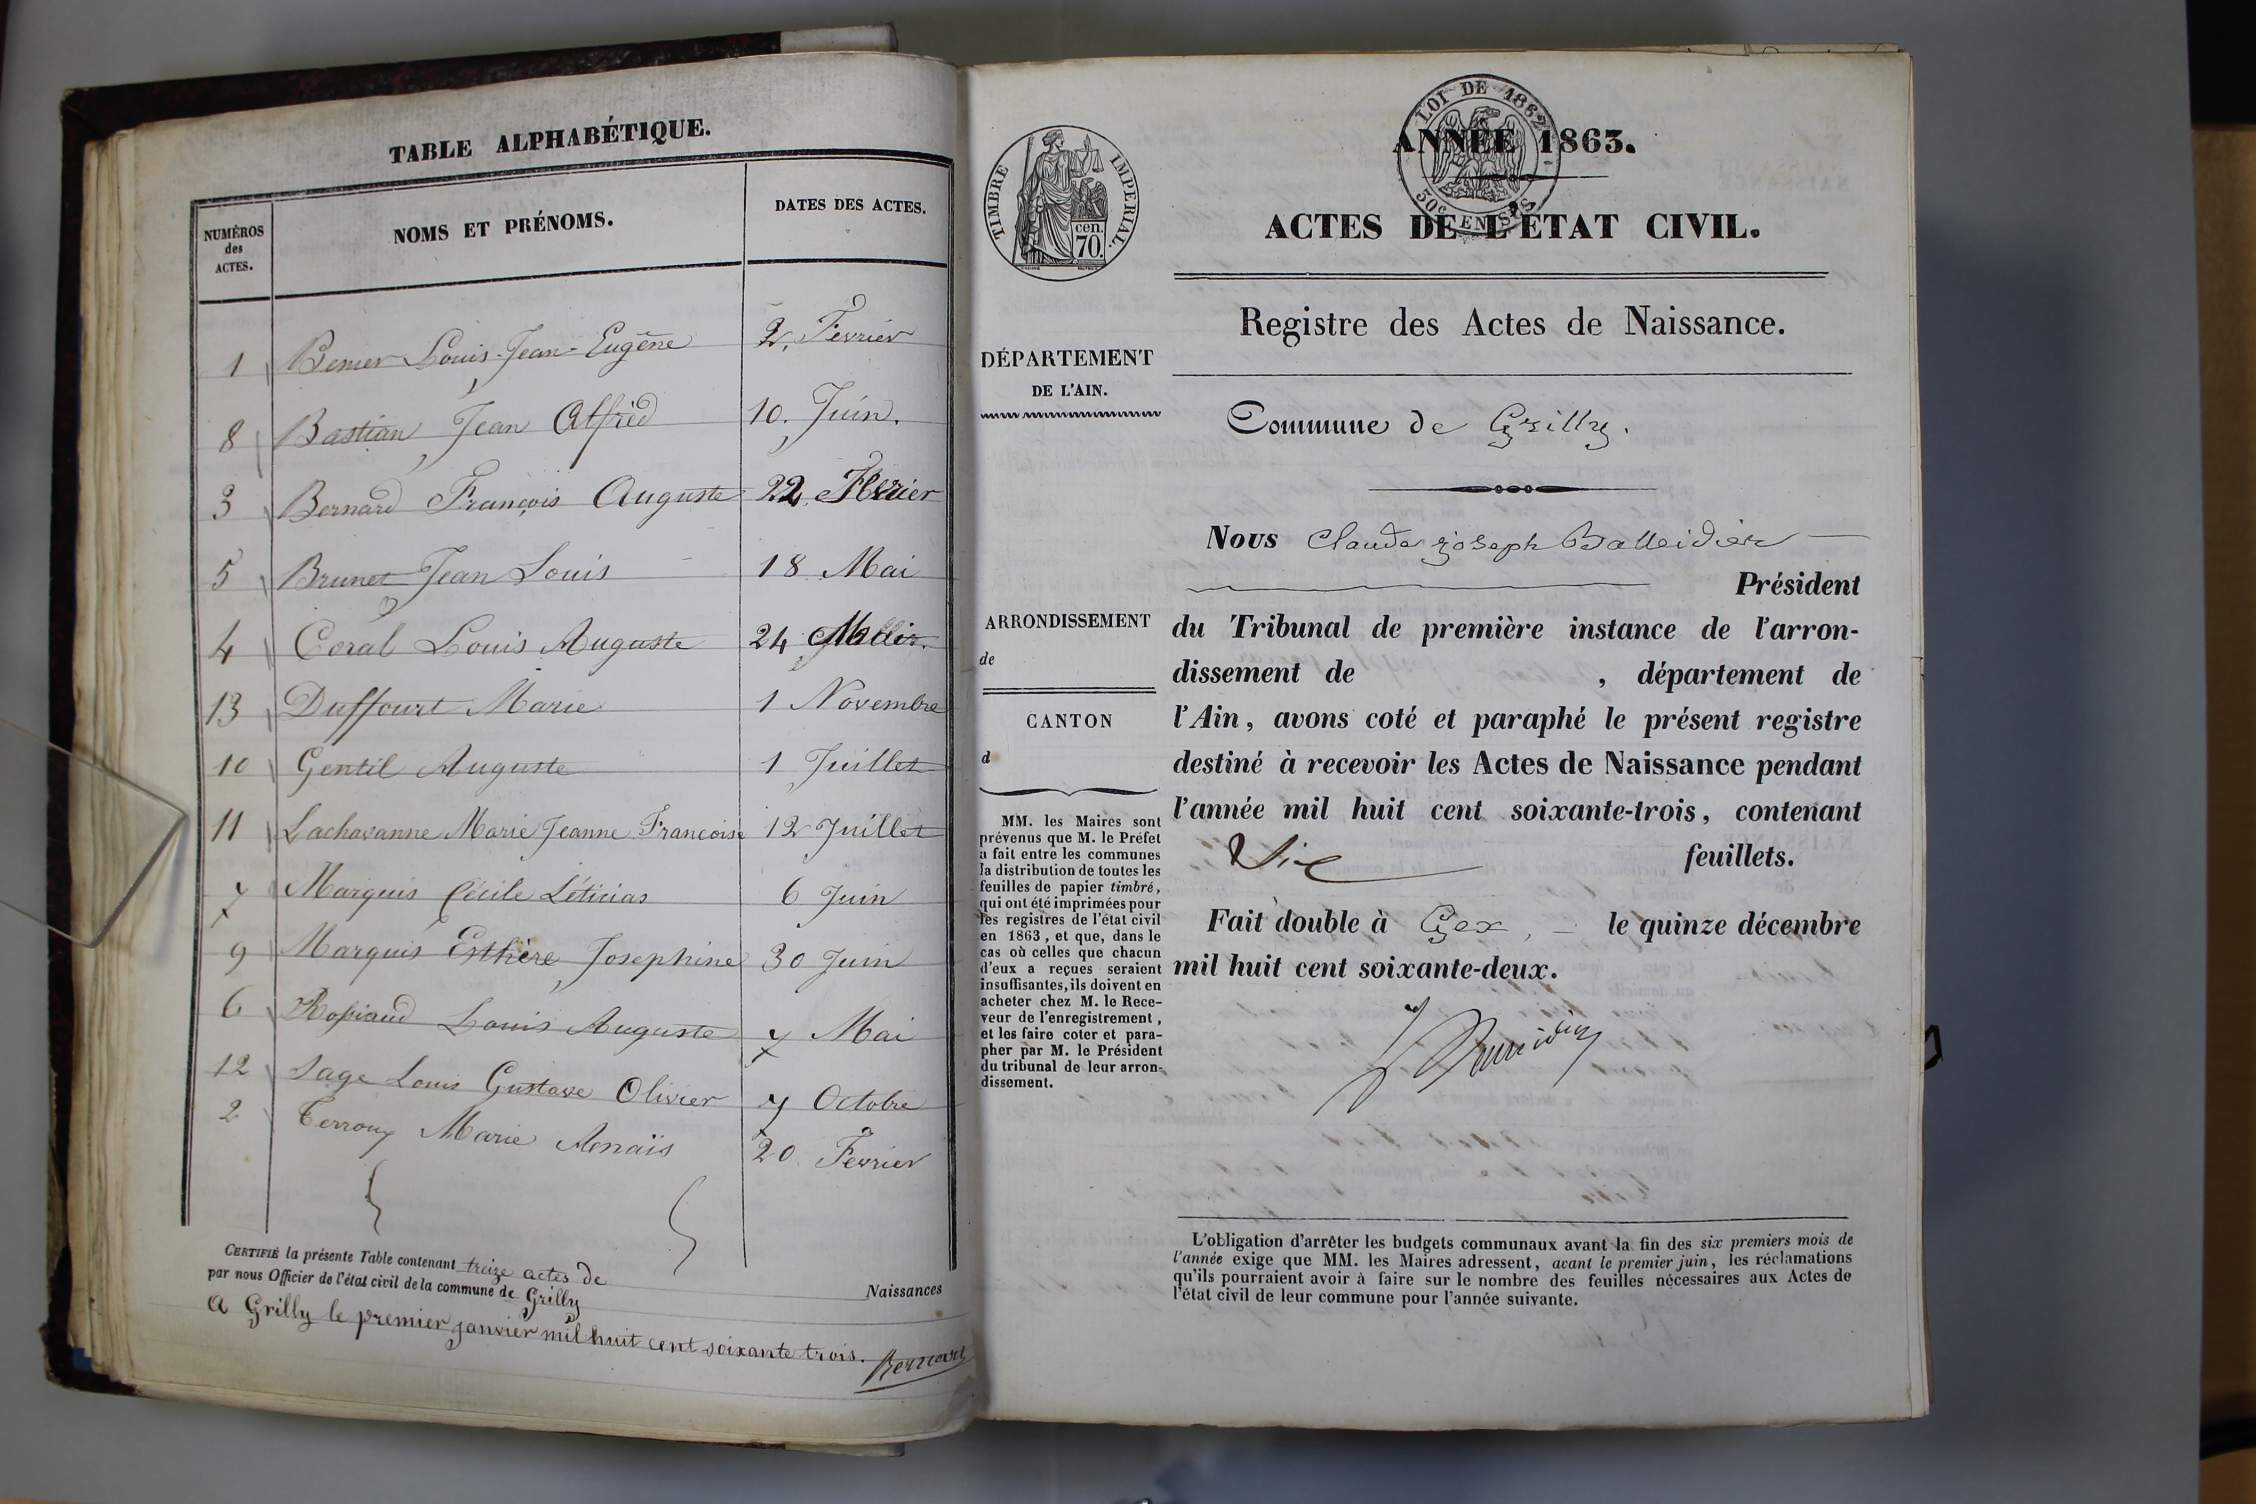 TABLE ALPHABÉTIQUE.
NUMÉROS
des
ACTES.
NOMS ET PRÉNOMS.
DATES DES ACTES.
1 Benier Louis-Jean-Eugène 2, Fevrier
8 Bastian Jean Alfred 10. Juin.
3 Bernard François Auguste 22 Fevrier
5 Brunet Jean Louis 18 Mai
4 Coral Louis Auguste 24
13 Duffourt Marie 1 Novembre
10 Gentil Auguste 1 Juillet
11 Lachavanne Marie Jeanne Françoise 12 Juillet
7 Marquis Cécile Léticias 6 Juin
9 Marquis Esthère Josephine 30 Juin
6 Louis Auguste 7 Mai
12 Sage Louis Gustave Olivier 7 Octobre
2 Terroux Marie Anaïs 20 Fevrier
CERTIFIÉ la présente Table contenant treize actes de
Naissances
par nous Officier de l'état civil de la commune de Grilly
A Grilly le premier janvier mil huit cent soixante trois.
Bernard
TIMBRE IMPÉRIAL.
cen.
70.
LOI DE 1862
50c EN SUS
ANNÉE 1863.
ACTES DE L'ÉTAT CIVIL.
Registre des Actes de Naissance.
DÉPARTEMENT
DE L'AIN.
Commune de Grilly.
Nous Claude joseph Balleidier
Président
du Tribunal de première instance de l'arron-
dissement de , département de
l'Ain, avons coté et paraphé le présent registre
destiné à recevoir les Actes de Naissance pendant
l'année mil huit cent soixante-trois, contenant
Six feuillets.
Fait double à Gex, le quinze décembre
mil huit cent soixante-deux.
ARRONDISSEMENT
de
CANTON
d
MM. les Maires sont
prévenus que M. le Préfet
a fait entre les communes
la distribution de toutes les
feuilles de papier timbré,
qui ont été imprimées pour
les registres de l'état civil
en 1863, et que, dans le
cas où celles que chacun
d'eux a reçues seraient
insuffisantes, ils doivent en
acheter chez M. le Rece-
veur de l'enregistrement,
et les faire coter et para-
pher par M. le Président
du tribunal de leur arron-
dissement.
L'obligation d'arrêter les budgets communaux avant la fin des six premiers mois de
l'année exige que MM. les Maires adressent, avant le premier juin, les réclamations
qu'ils pourraient avoir à faire sur le nombre des feuilles nécessaires aux Actes de
l'état civil de leur commune pour l'année suivante.